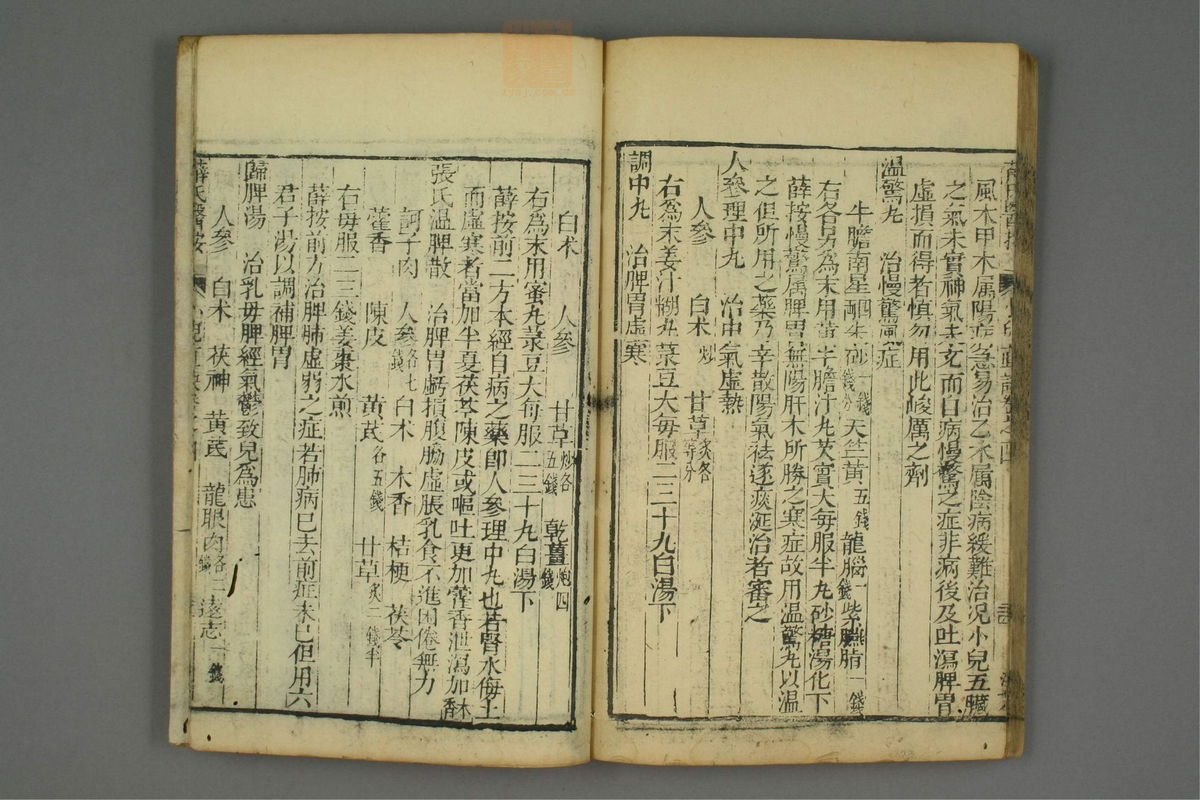 風木甲木属陽症急易治乙木属陰病緩難治况小兒五臟
之氣未實神氣未充而白病慢驚之症非病後及吐瀉脾胃
虛損而得者慎勿用此峻厲之劑
温驚丸 治慢驚風症
牛膽南星 硃砂一錢 天竺黄五錢 龍腦一錢 紫臙脂一錢
右各另為末用 牛膽汁丸芡實大每服半丸砂糖湯化下
薛按慢驚属脾胃無陽肝木所勝之寒症故用温驚丸以温
之但所用之藥乃辛散陽氣祛逐痰涎治者審之
人參理中丸 治中氣虛熱
人參 白术炒 甘草炙各等分
右為末姜汁糊丸菉豆大每服二三十丸白湯下
調中丸 治脾胃虛寒
白术 人參 甘草炒各五錢 乾薑炮四錢
右為末用蜜丸菉豆大每服二三十丸白湯下
薛按前二方本經自病之藥即人參理中丸也若腎水侮土
而虛寒者當加半夏茯苓陳皮或嘔吐更加藿香泄瀉加木香
張氏温脾散 治脾胃虧損腹脇虛脹乳食不進困倦無力
訶子肉 人參各七錢 白术 木香 桔梗 茯苓
藿香 陳皮 黄芪各五錢 甘草炙二錢半
右每服二三錢姜棗水煎
薛按前方治脾肺虛弱之症若肺病已去前症未已但用六
君子湯以調補脾胃
歸脾湯 治乳母脾經氣鬱致兒為患
人參 白术 茯神 黄芪 龍眼肉各二錢 遠志一錢
薛氏醫按